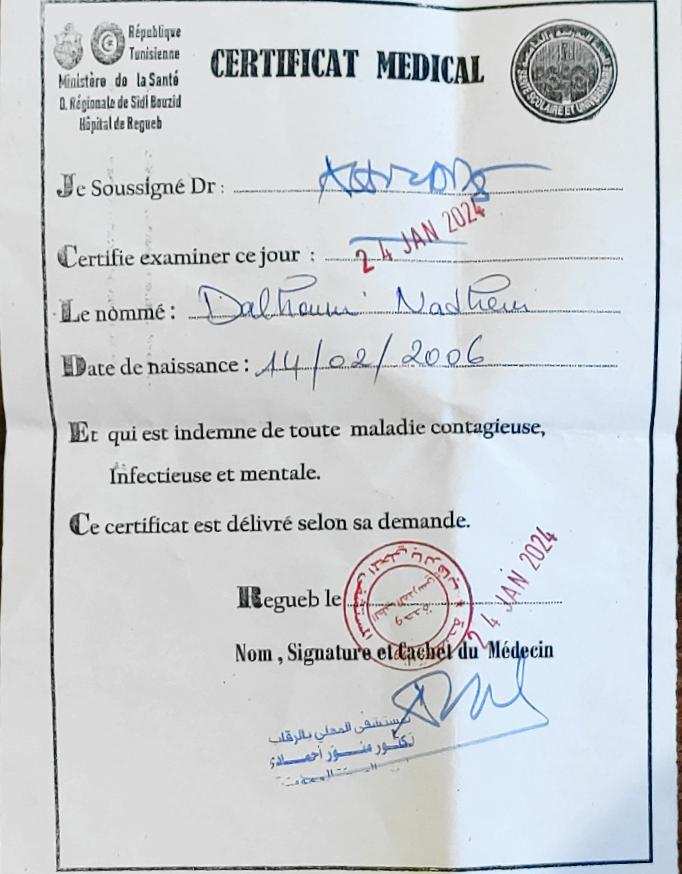 République
Tunisienne
Ministère de la Santé
D. Régionale de Sidi Bouzid
Hôpital de Regueb
CERTIFICAT MEDICAL
Je Soussigné Dr :
Certifie examiner ce jour : 24 JAN 2024
Le nommé : Dalhoumi Nadhem
Date de naissance : 14/02/2006
Et qui est indemne de toute maladie contagieuse,
Infectieuse et mentale.
Ce certificat est délivré selon sa demande.
Regueb le 24 JAN 2024
Nom , Signature et Cachet du Médecin
مستشفى المحلي بالرقاب
دكتور منور أحمادي